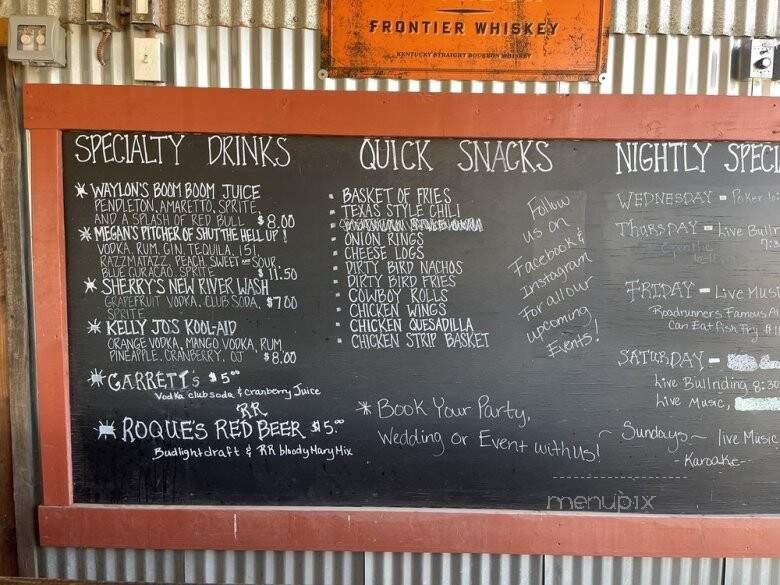 FRONTIER WHISKEY
KENTUCKY STRAIGHT BOURBON WHISKEY
SPECIALTY DRINKS
* WAYLON'S BOOM BOOM JUICE
PENDLETON, AMARETTO, SPRITE
AND A SPLASH OF RED BULL $8.00
* MEGAN'S PITCHER OF SHUT THE HELL UP!
VODKA, RUM, GIN, TEQUILA, 151
RAZZMATAZZ, PEACH, SWEET AND SOUR,
BLUE CURACAO, SPRITE $11.50
* SHERRY'S NEW RIVER WASH
GRAPEFRUIT VODKA, CLUB SODA, $7.00
SPRITE
* KELLY JO'S KOOL-AID
ORANGE VODKA, MANGO VODKA, RUM,
PINEAPPLE, CRANBERRY, OJ $8.00
* GARRETT's $5.00
Vodka club soda & Cranberry Juice
RR
* ROQUE'S RED BEER $5.00
Budlight draft & RR bloody Mary Mix
QUICK SNACKS
BASKET OF FRIES
TEXAS STYLE CHILI
ONION RINGS
CHEESE LOGS
DIRTY BIRD NACHOS
DIRTY BIRD FRIES
COWBOY ROLLS
CHICKEN WINGS
CHICKEN QUESADILLA
CHICKEN STRIP BASKET
Follow
us on
Facebook &
Instagram
For all our
upcoming
Events!
* Book Your Party,
Wedding or Event with us!
NIGHTLY SPECI
WEDNESDAY - Poker
THURSDAY - Live Bullr
FRIDAY - Live Musi
Roadrunners Famous Al
Can Eat Fish Fry
SATURDAY -
Live Bullriding 8:30
Live Music,
~ Sundays ~ live Music
- Karaoke -
menupix